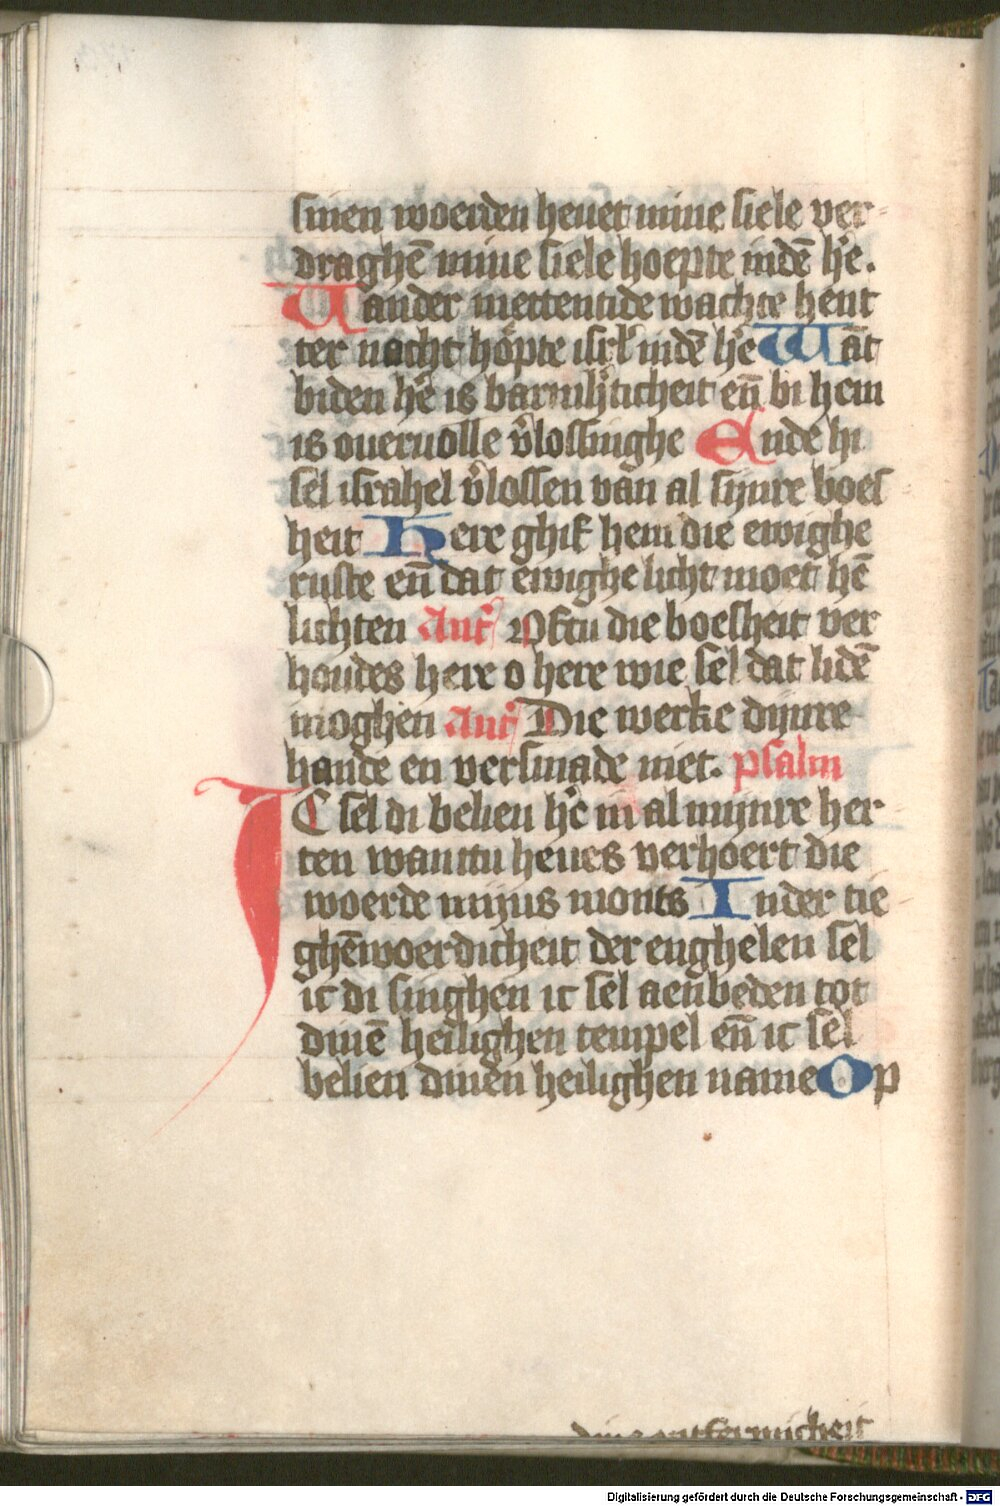 sinen woerden heuet mine siele ver-
draghē mine siele hoepte indē h'e.
Uander mettentide wachte hent
ter nacht hope isr̄l indē h'e Wāt
biden h'e is barmh'ticheit eñ bi hem
is oueruolle v'lossinghe Ende hi
sel israhel v'lossen van al sijnre boes
heit Here ghif hem die ewighe
ruste eñ dat ewighe licht moet hē
lichten Ant' Ofstu die boesheit ver
houdes here o here wie sel dat lidē
moghen Ant' Die wercke dijnre
hande en versmade niet. psalm
IC sel di belien h'e in al mijnre her
ten wanttu heues verhoert die
woerde mijns monts In der tie
ghēwoerdicheit der enghelen sel
ic di singhen ic sel aenbeden tot
dinē heilighen tempel eñ ic sel
belien dinen heilighen name Op
dine ontfermicheit
Digitalisierung gefördert durch die Deutsche Forschungsgemeinschaft - DFG